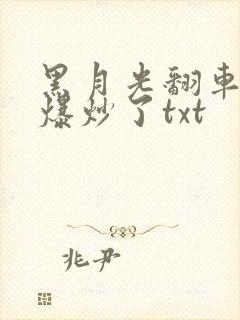 黑月光翻車
爆炒了txt
兆尹